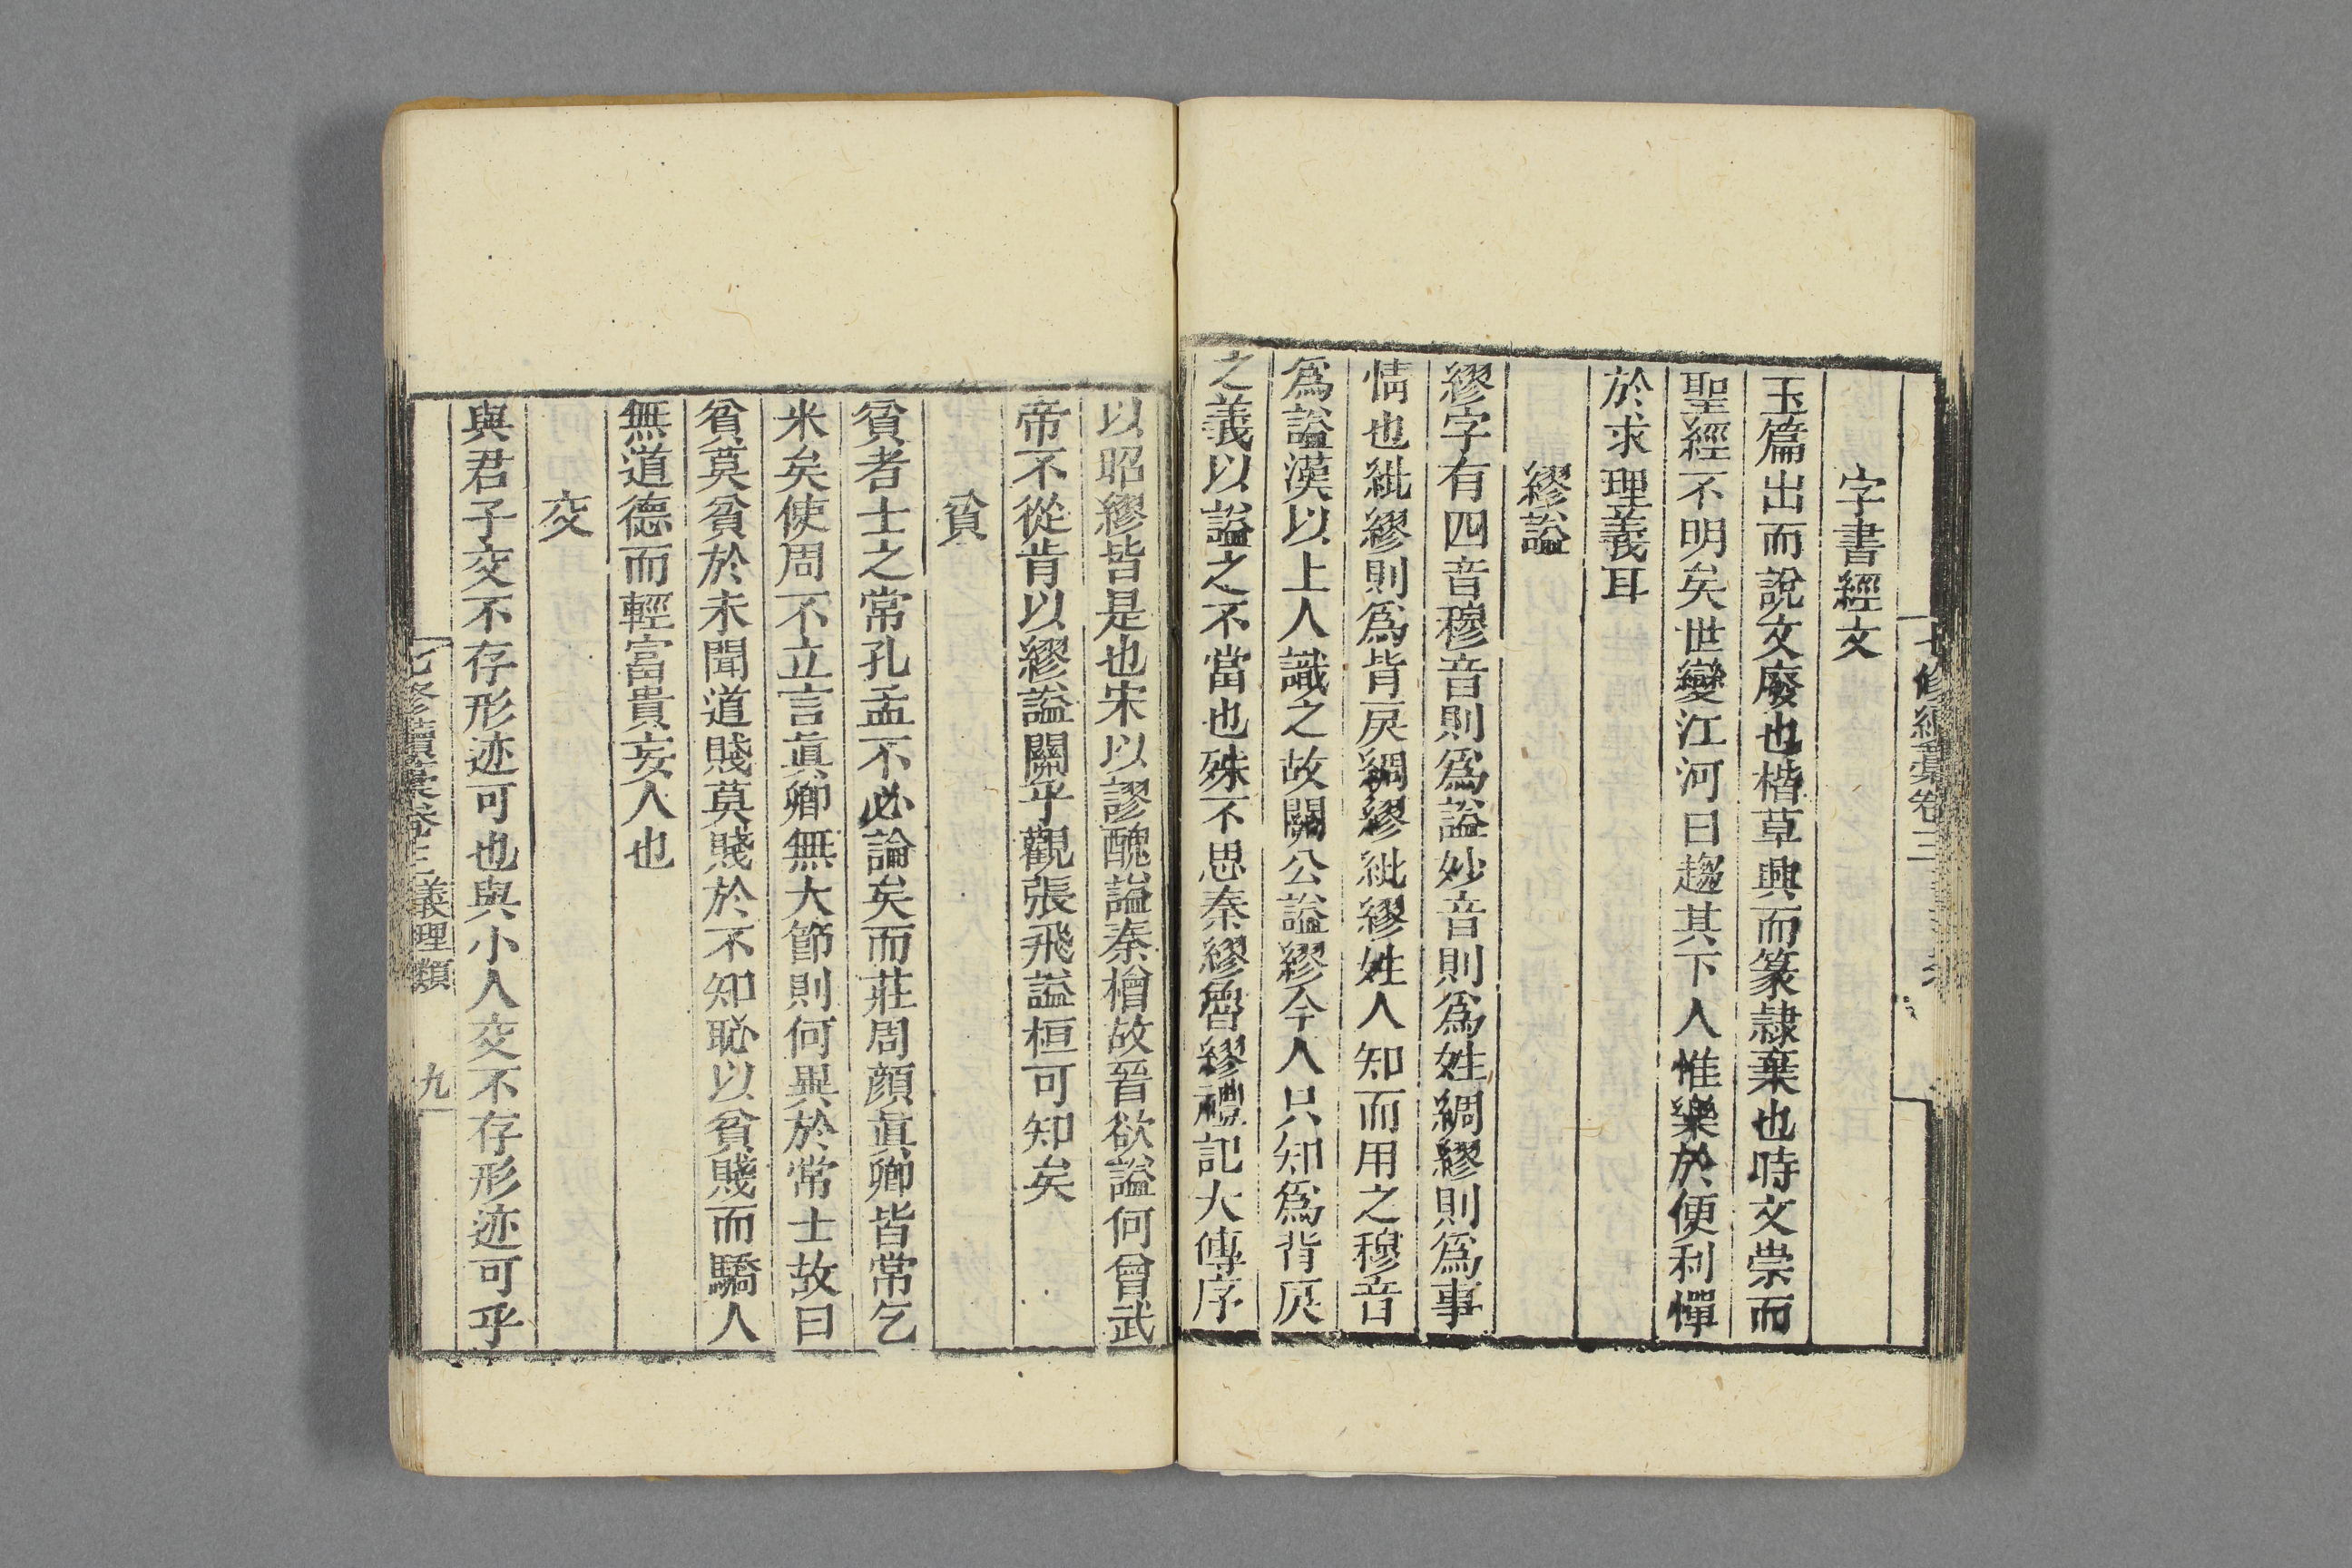 字書經文
玉篇出而說文廢也楷草興而篆隷棄也時文崇而
聖經不明矣世變江河日趨其下人惟樂於便利憚
於求理義耳
繆謚
繆字有四音穆音則爲謚妙音則爲姓綢繆則爲事
情也紕繆則爲背戾綢繆紕繆姓人知而用之穆音
爲謚漢以上人識之故關公謚繆今人只知爲背戾
之義以謚之不當也殊不思秦繆魯繆禮記大傳序
以昭繆皆是也宋以謬醜謚秦檜故晉欲謚何曾武
帝不從肯以繆謚關乎觀張飛謚桓可知矣
貧
貧者士之常孔孟不必論矣而莊周顔眞卿皆常乞
米矣使周不立言眞卿無大節則何異於常士故曰
貧莫貧於未聞道賤莫賤於不知恥以貧賤而驕人
無道德而輕富貴妄人也
交
與君子交不存形迹可也與小人交不存形迹可乎
七修續藁卷三義理類 九